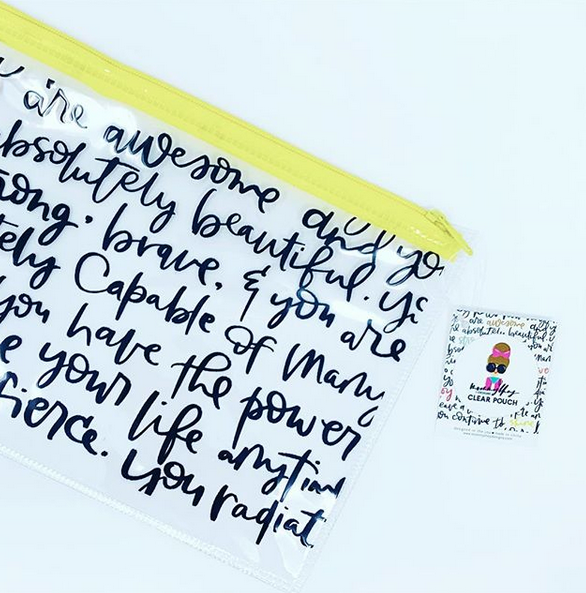 are awesome and yo
absolutely beautiful. yo
rong. brave. & you are
tely Capable Of Many
you have the power
e your life anytim
fierce. you radiat
are awesome
absolutely beautiful
CLEAR POUCH
continue to